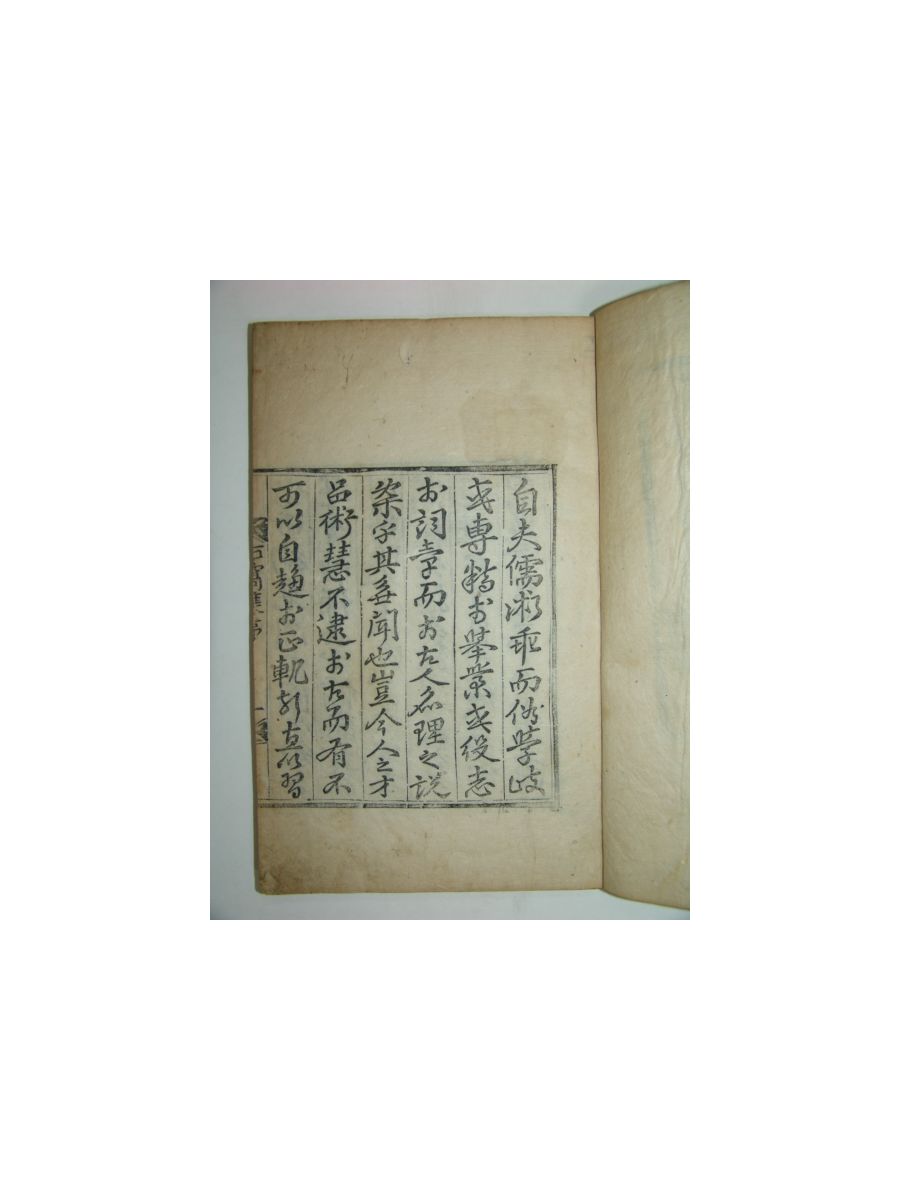 自夫儒術乖而俗學歧
或專精於舉業或役志
於詞章而於古人名理之說
槩乎其無聞也豈今人之才
品術慧不逮於古而有不
可以自趨於正軌歟直以習
集序
一